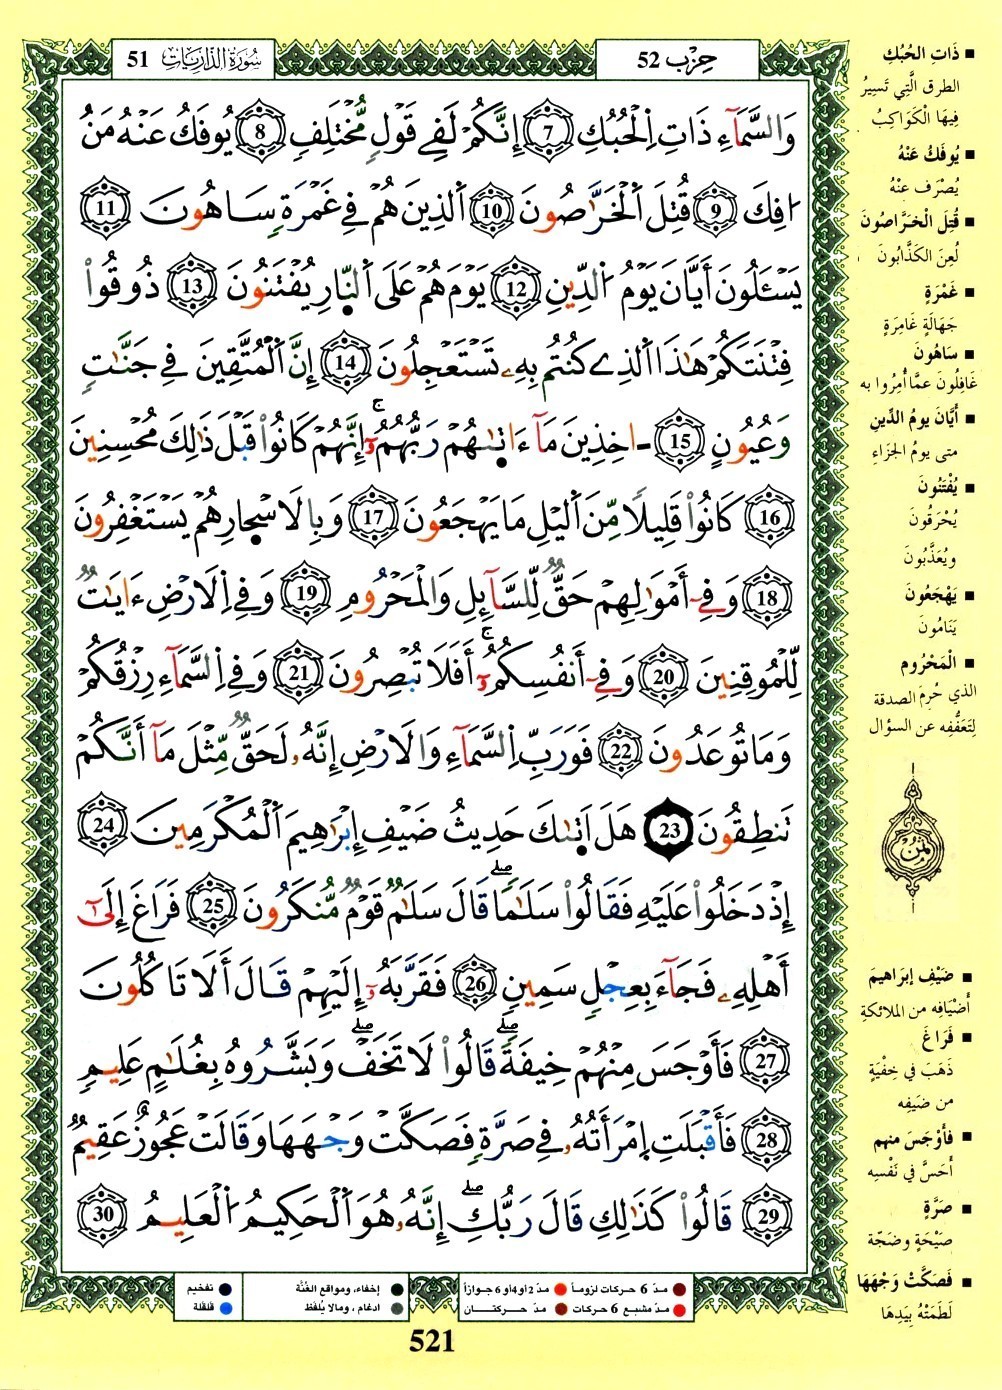 سُورَةُ الذَّارِيَات 51
حِزْب 52
وَالسَّمَآءِ ذَاتِ اِ۬لْحُبُكِ 7 إِنَّكُمْ لَفِے قَوْلٖ مُّخْتَلِفٖ 8 يُوفَكُ عَنْهُ مَنُ
اُفِكَ 9 قُتِلَ اَ۬لْخَرَّٰصُونَ 10 اَ۬لذِينَ هُمْ فِے غَمْرَةٖ سَاهُونَ 11
يَسْـَٔلُونَ أَيَّانَ يَوْمُ اُ۬لدِّينِ 12 يَوْمَ هُمْ عَلَى اَ۬لنّ۪ارِ يُفْتَنُونَ 13 ذُوقُواْ
فِتْنَتَكُمْ هَٰذَا اَ۬لذِے كُنتُم بِهِۦ تَسْتَعْجِلُونَ 14 إِنَّ اَ۬لْمُتَّقِينَ فِے جَنَّٰتٖ
وَعُيُونٍ 15 ـاخِذِينَ مَآ ءَات۪يٰهُمْ رَبُّهُمُۥٓ إِنَّهُمْ كَانُواْ قَبْلَ ذَٰلِكَ مُحْسِنِينَ
16 كَانُواْ قَلِيلاٗ مِّنَ اَ۬ليْلِ مَا يَهْجَعُونَ 17 وَبِالَاسْح۪ارِ هُمْ يَسْتَغْفِرُونَ
18 وَفِےٓ أَمْوَٰلِهِمْ حَقّٞ لِّلسَّآئِلِ وَالْمَحْرُومِ 19 وَفِے اِ۬لَارْضِ ءَايَٰتٞ
لِّلْمُوقِنِينَ 20 وَفِےٓ أَنفُسِكُمُۥٓ أَفَلَا تُبْصِرُونَ 21 وَفِے اِ۬لسَّمَآءِ رِزْقُكُمْ
وَمَا تُوعَدُونَ 22 فَوَرَبِّ اِ۬لسَّمَآءِ وَالَارْضِ إِنَّهُۥ لَحَقّٞ مِّثْلَ مَآ أَنَّكُمْ
تَنطِقُونَ 23 هَلَ اَت۪يٰكَ حَدِيثُ ضَيْفِ إِبْرَٰهِيمَ اَ۬لْمُكْرَمِينَ 24
إِذْ دَخَلُواْ عَلَيْهِ فَقَالُواْ سَلَٰماٗ قَالَ سَلَٰمٞ قَوْمٞ مُّنكَرُونَ 25 فَرَاغَ إِلَىٰٓ
أَهْلِهِۦ فَجَآءَ بِعِجْلٖ سَمِينٖ 26 فَقَرَّبَهُۥٓ إِلَيْهِمْ قَالَ أَلَا تَاكُلُونَ
27 فَأَوْجَسَ مِنْهُمْ خِيفَةٗ قَالُواْ لَا تَخَفْ وَبَشَّرُوهُ بِغُلَٰمٍ عَلِيمٖ
28 فَأَقْبَلَتِ اِ۪مْرَأَتُهُۥ فِے صَرَّةٖ فَصَكَّتْ وَجْهَهَا وَقَالَتْ عَجُوزٌ عَقِيمٞ
29 قَالُواْ كَذَٰلِكِ قَالَ رَبُّكِ إِنَّهُۥ هُوَ اَ۬لْحَكِيمُ اُ۬لْعَلِيمُ 30
■ ذَاتِ الحُبُكِ
الطرق الَّتِي تَسِيرُ
فِيهَا الْكَوَاكِبُ
■ يُوفَكُ عَنْهُ
يُصْرَف عَنْهُ
■ قُتِلَ الْخَرَّاصُونَ
لُعِنَ الكَذَّابُونَ
■ غَمْرَةٍ
جَهَالَةٍ غَامِرَةٍ
■ سَاهُونَ
غَافِلُونَ عمَّا أُمِرُوا به
■ أَيَّانَ يومُ الدِّينِ
متى يومُ الجَزَاءِ
■ يُفْتَنُونَ
يُحْرَقُونَ
ويُعَذَّبُونَ
■ يَهْجَعُونَ
يَنَامُونَ
■ الْمَحْرُوم
الذي حُرِمَ الصدقة
لِتَعَفُّفِه عن السؤال
ثمن
■ ضَيْفِ إبرَاهِيمَ
أَضْيَافِه من الملائكة
■ فَرَاغَ
ذَهَبَ في خِفْيَةٍ
من ضَيفِه
■ فأَوْجَسَ منهم
أَحَسَّ في نَفْسِه
■ صَرَّةٍ
صَيْحَةٍ وضَجّة
■ فَصَكَّتْ وَجْهَهَا
لَطَمَتْهُ بِيَدِهَا
مدّ 6 حركات لزوماً مدّ 2 أو 4 أو 6 جوازاً إخفاء، ومواقع الغُنَّة تفخيم
مدّ مشبع 6 حركات مدّ حركتــان ادغام، ومالا يُلفَظ قلقلة
521